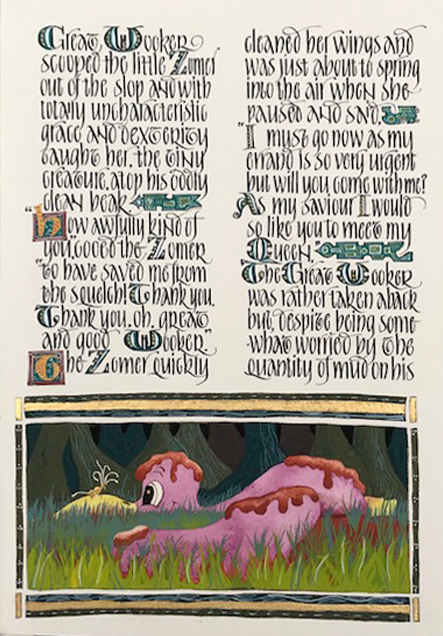 Great Wooker
scooped the little Zomer
out of the slop and with
totally uncharacteristic
grace and dexterity
caught her, the tiny
creature, atop his oddly
clean beak.
"How awfully kind of
you, cooed the Zomer
"to have saved me from
the squelch! Thank you.
Thank you, oh, great
and good Wooker."
The Zomer quickly
cleaned her wings and
was just about to spring
into the air when she
paused and said,
"I must go now as my
errand is so very urgent
but will you come with me?
As my saviour I would
so like you to meet my
Queen.
The Great Wooker
was rather taken aback
but, despite being some-
-what worried by the
quantity of mud on his